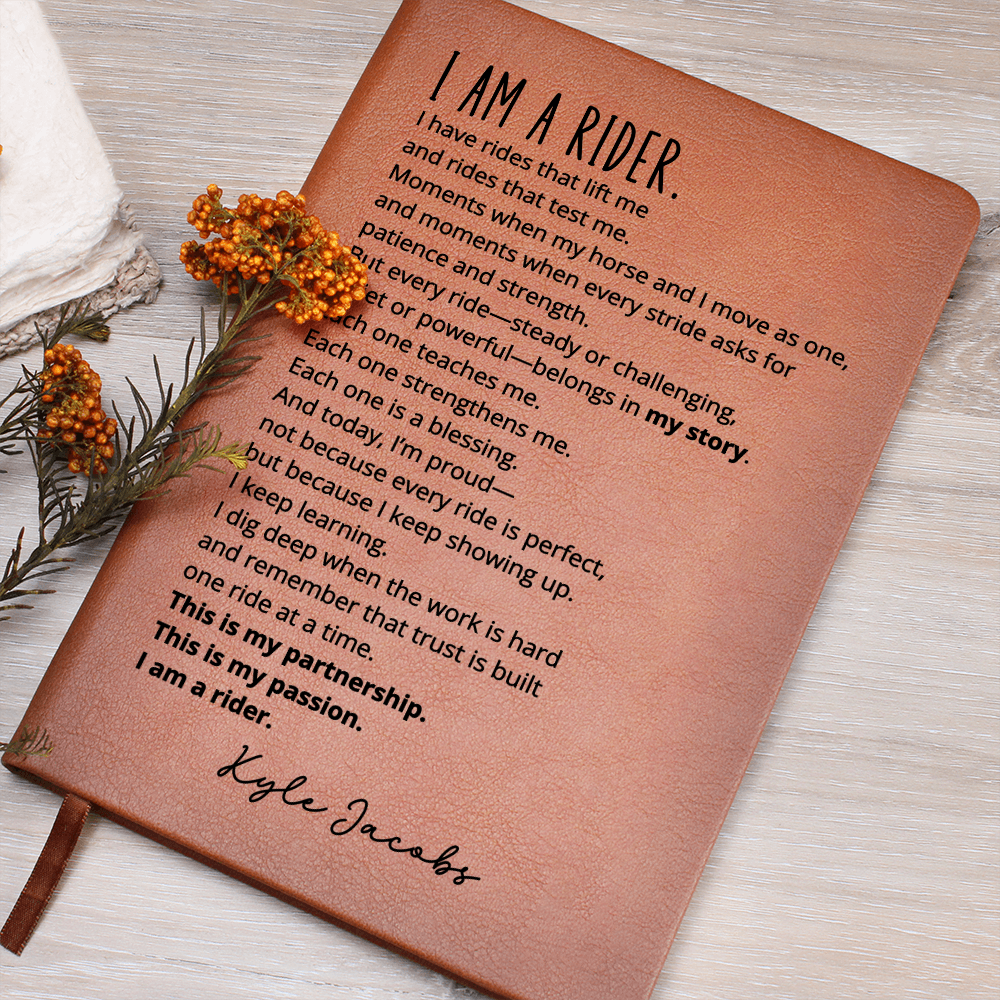 I AM A RIDER.
I have rides that lift me
and rides that test me.
Moments when my horse and I move as one,
and moments when every stride asks for
patience and strength.
But every ride—steady or challenging,
or powerful—belongs in my story.
one teaches me.
Each one strengthens me.
Each one is a blessing.
And today, I'm proud—
not because every ride is perfect,
but because I keep showing up.
I keep learning.
I dig deep when the work is hard
and remember that trust is built
one ride at a time.
This is my partnership.
This is my passion.
I am a rider.
Kyle Jacobs